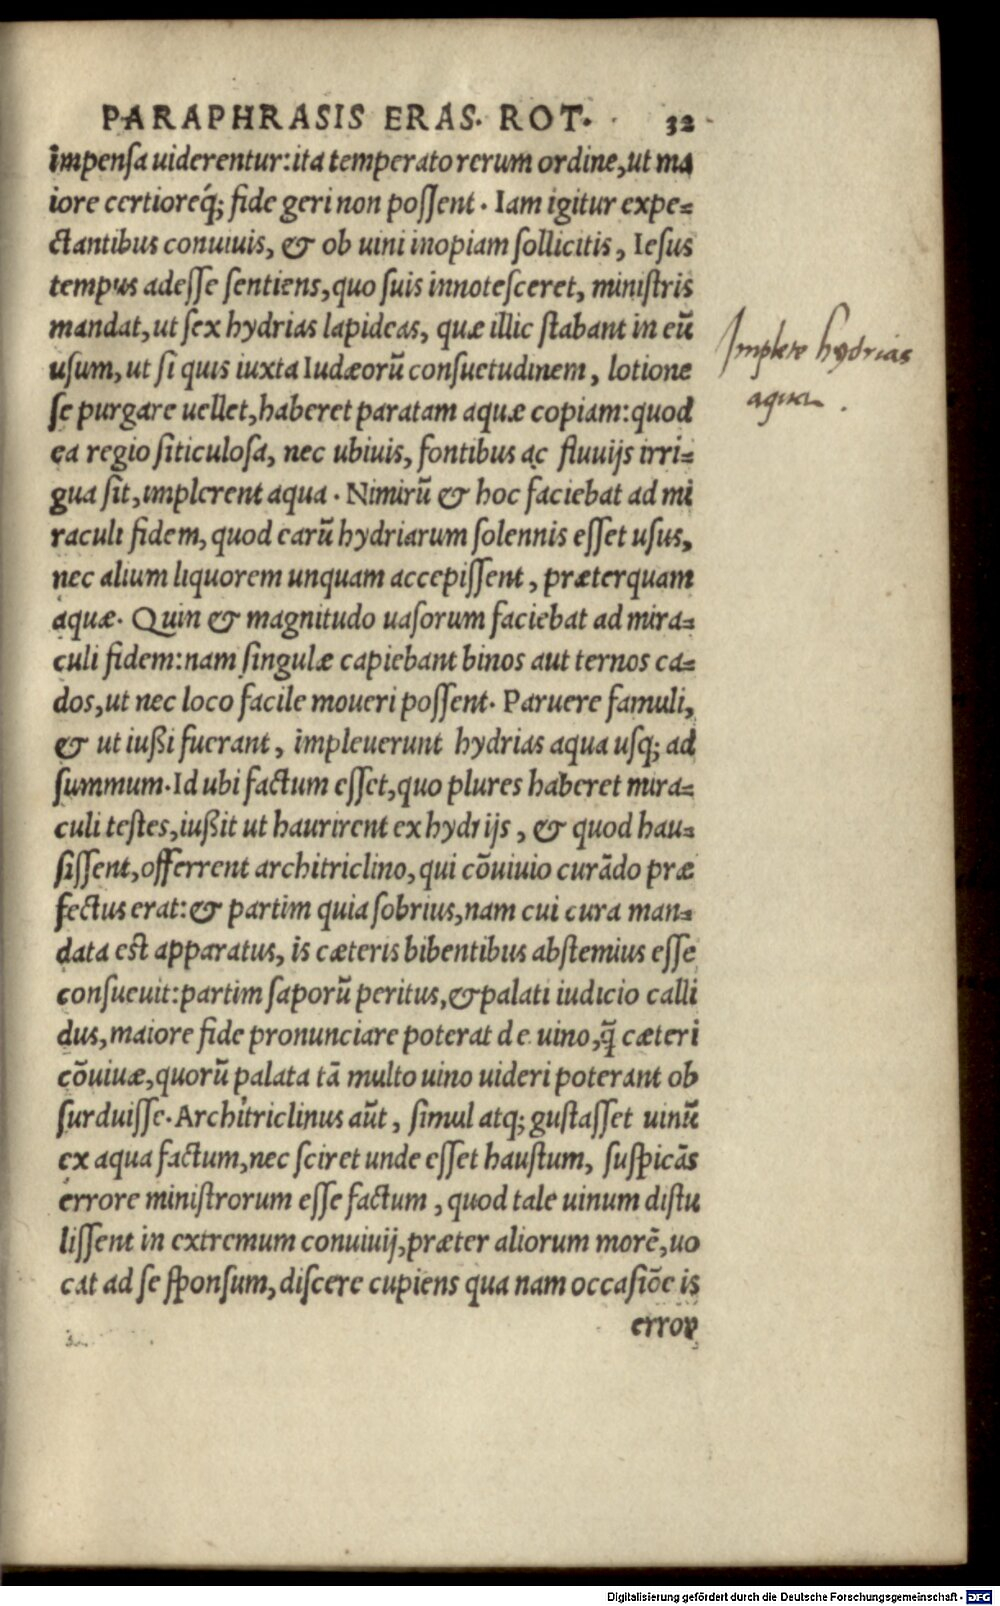 PARAPHRASIS ERAS. ROT. 32
impensa uiderentur: ita temperato rerum ordine, ut ma
iore certioreq́; fide geri non possent. Iam igitur expe-
ctantibus conuiuis, & ob uini inopiam sollicitis, Iesus
tempus adesse sentiens, quo suis innotesceret, ministris
mandat, ut sex hydrias lapideas, quæ illic stabant in eū
usum, ut si quis iuxta Iudæorū consuetudinem, lotione
se purgare uellet, haberet paratam aquæ copiam: quod
ea regio siticulosa, nec ubiuis, fontibus ac fluuijs irri-
gua sit, implerent aqua. Nimirū & hoc faciebat ad mi
raculi fidem, quod earū hydriarum solennis esset usus,
nec alium liquorem unquam accepissent, præterquam
aquæ. Quin & magnitudo uasorum faciebat ad mira-
culi fidem: nam singulæ capiebant binos aut ternos ca-
dos, ut nec loco facile moueri possent. Paruere famuli,
& ut iußi fuerant, impleuerunt hydrias aqua usq; ad
summum. Id ubi factum esset, quo plures haberet mira-
culi testes, iußit ut haurirent ex hydrijs, & quod hau-
sissent, offerrent architriclino, qui cōuiuio curādo præ
fectus erat: & partim quia sobrius, nam cui cura man-
data est apparatus, is cæteris bibentibus abstemius esse
consueuit: partim saporū peritus, & palati iudicio calli
dus, maiore fide pronunciare poterat de uino, q̄ cæteri
cōuiuæ, quorū palata tā multo uino uideri poterant ob
surduisse. Architriclinus aūt, simul atq; gustasset uinū
ex aqua factum, nec sciret unde esset haustum, suspicās
errore ministrorum esse factum, quod tale uinum distu
lissent in extremum conuiuij, præter aliorum morē, uo
cat ad se sponsum, discere cupiens qua nam occasiōe is
error
Implete hydrias
aqua.
Digitalisierung gefördert durch die Deutsche Forschungsgemeinschaft - DFG